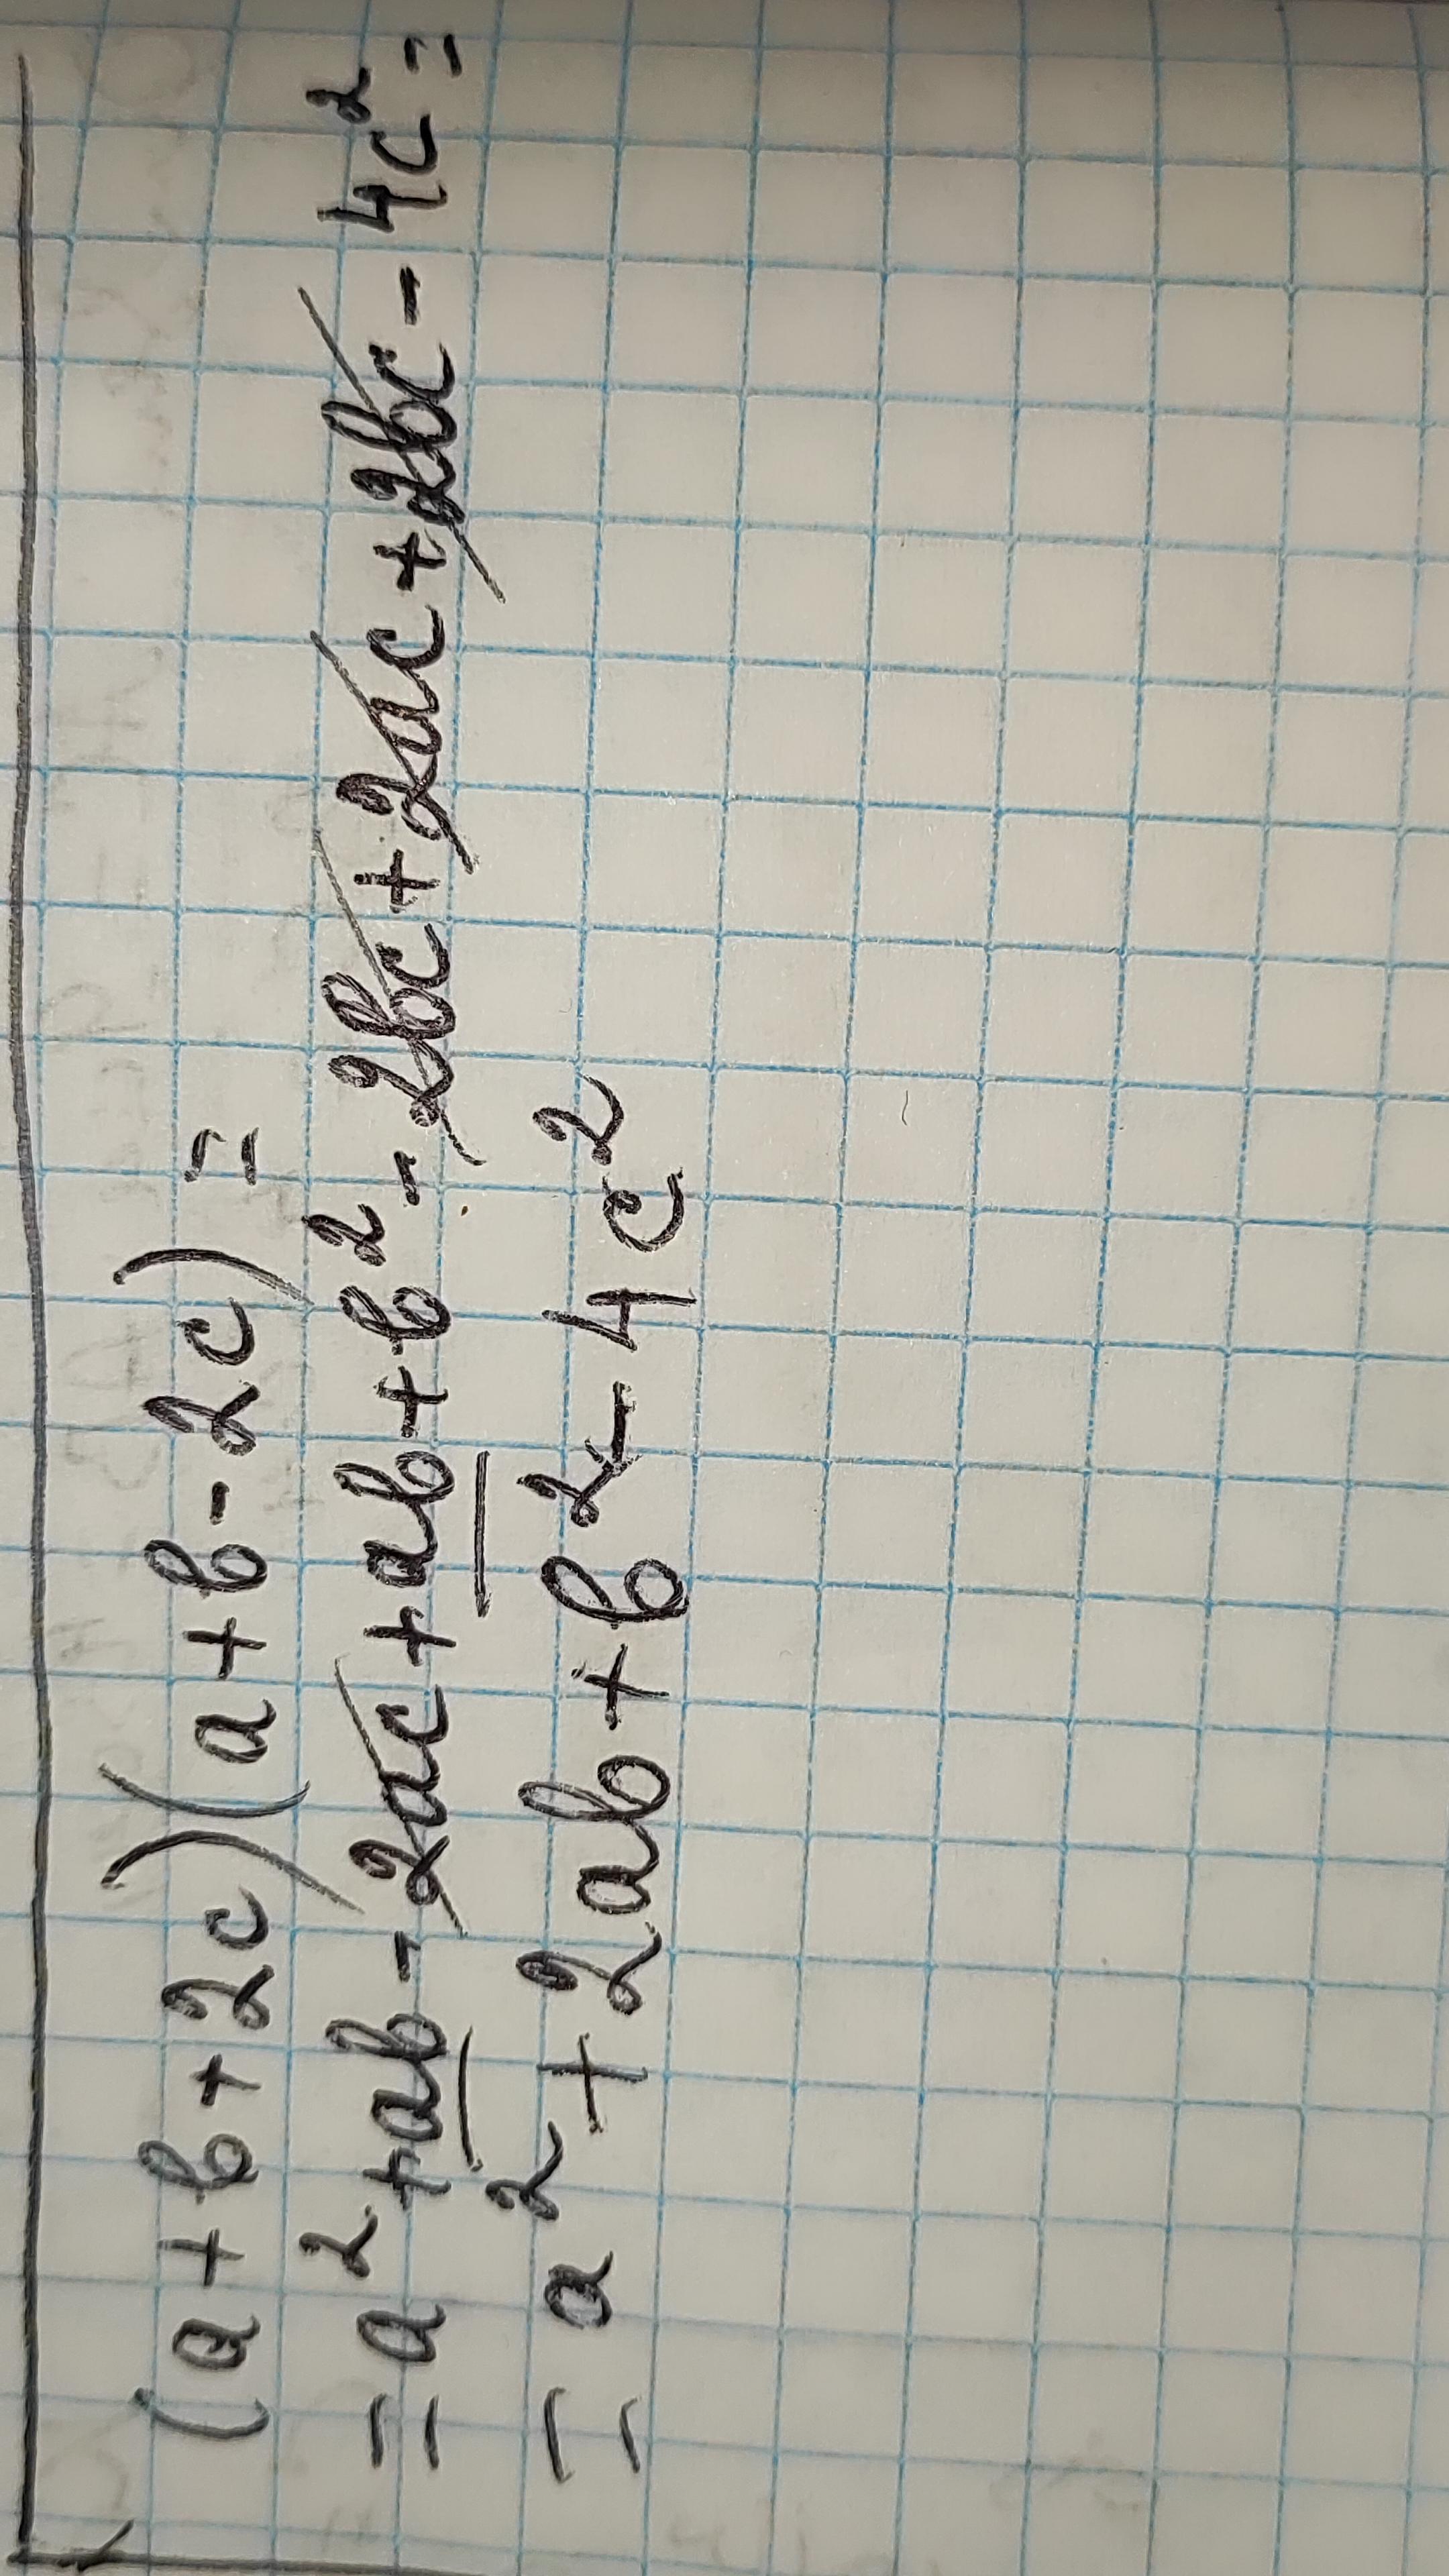 (a+b+2c)(a+b-2c)=
=a²+ab-2ac+ab+b²-2bc+2ac+2bc-4c²=
=a²+2ab+b²-4c²